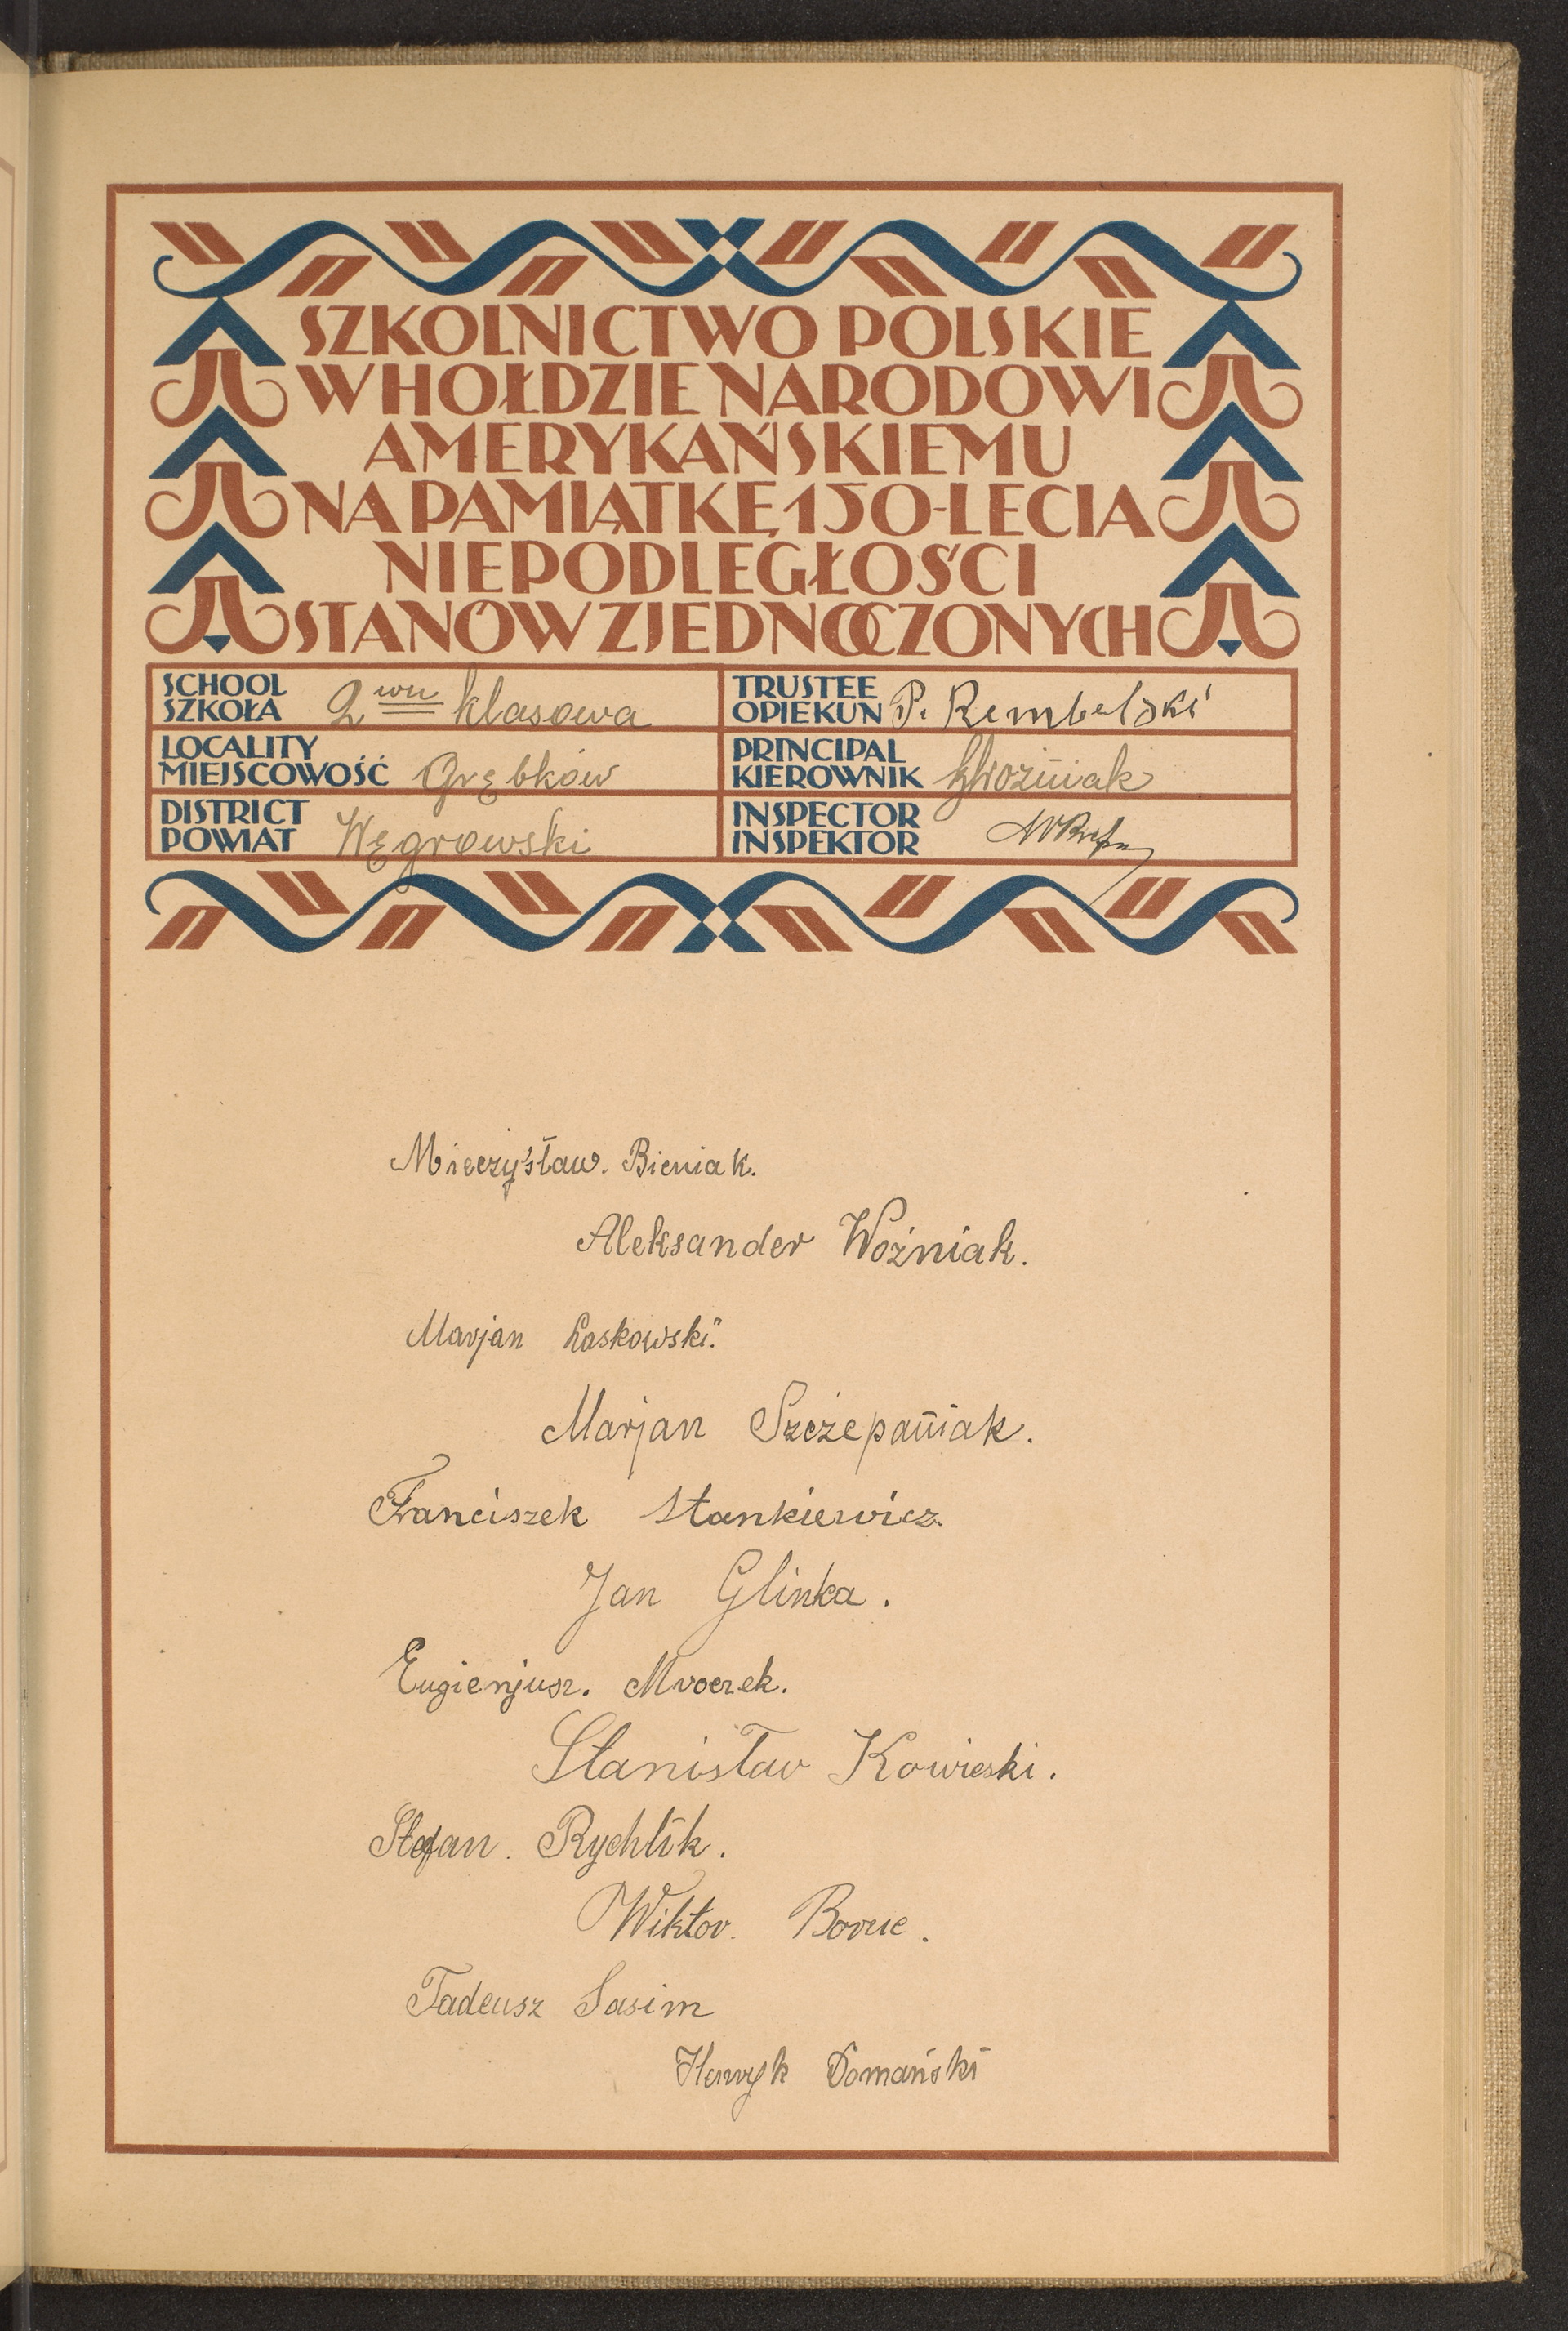 SZKOLNICTWO POLSKIE
W HOŁDZIE NARODOWI
AMERYKAŃSKIEMU
NA PAMIĄTKĘ 150-LECIA
NIEPODLEGŁOŚCI
STANÓW ZJEDNOCZONYCH
SCHOOL
SZKOŁA 2wu klasowa
TRUSTEE
OPIEKUN P. Rembelski
LOCALITY
MIEJSCOWOŚĆ Grębków
PRINCIPAL
KIEROWNIK Woźniak
DISTRICT
POWIAT Węgrowski
INSPECTOR
INSPEKTOR
Mieczysław. Bieniak.
Aleksander Woźniak.
Marjan Laskowski.
Marjan Szczepaniak.
Franciszek Stankiewicz.
Jan Glinka.
Eugienjusz. Mroczek.
Stanisław Kowieski.
Stefan. Rychlik.
Wiktor. Boruc.
Tadeusz Sasim
Henryk Domański